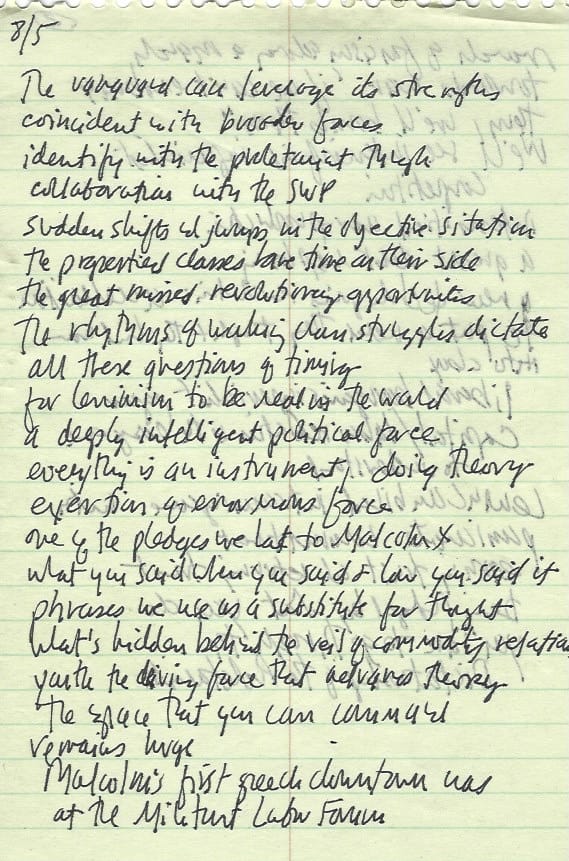 8/5
The vanguard can leverage its strengths
coincident with broader forces
identify with the proletariat through
collaboration with the SWP
sudden shifts and jumps in the objective situation
the propertied classes have time on their side
the great missed revolutionary opportunities
The rhythms of working class struggles dictate
all these questions of timing
for Leninism to be real in the world
a deeply intelligent political force
everything is an instrument, doing theory
exertion of enormous force
one of the pledges we last to Malcolm X
what you said when you said & how you said it
phrases we use as a substitute for thought
What's hidden behind the veil of commodity relations
youth the driving force that advances theory
The space that you can command
remains huge
Malcolm's first speech downtown was
at the Militant Labor Forum